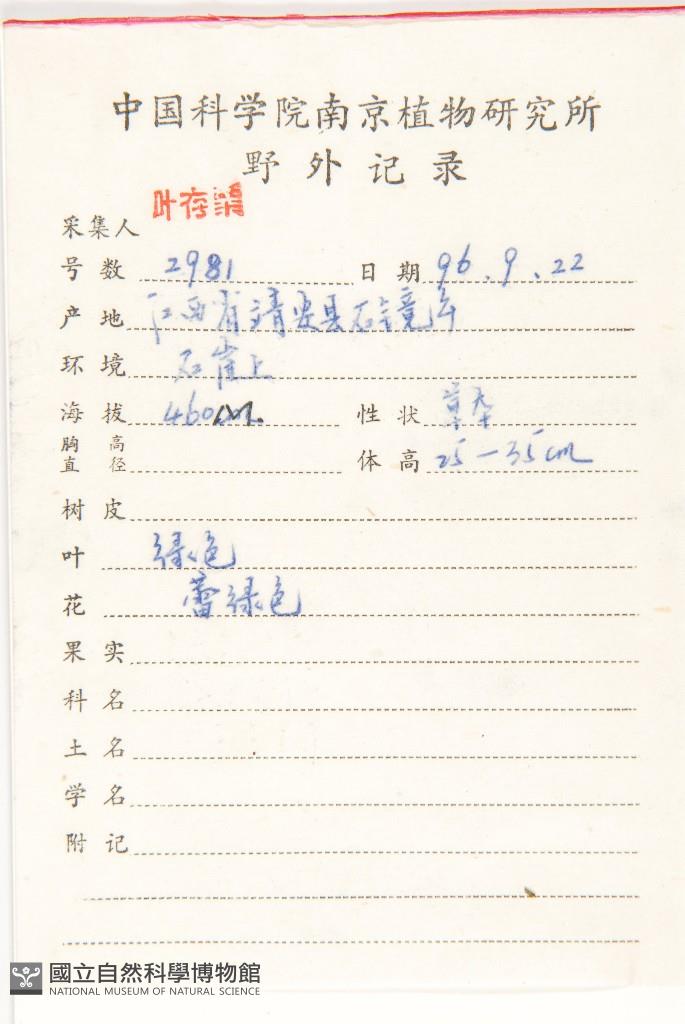 中国科学院南京植物研究所
野外记录
采集人 叶存
号数 2981 日期 96.9.22
产地 江西省靖安县石镜
环境 石崖上
海拔 460m 性状 草本
胸高直径 体高 25-35cm
树皮
叶 绿色
花 蕾绿色
果实
科名
土名
学名
附记
國立自然科學博物館
NATIONAL MUSEUM OF NATURAL SCIENCE